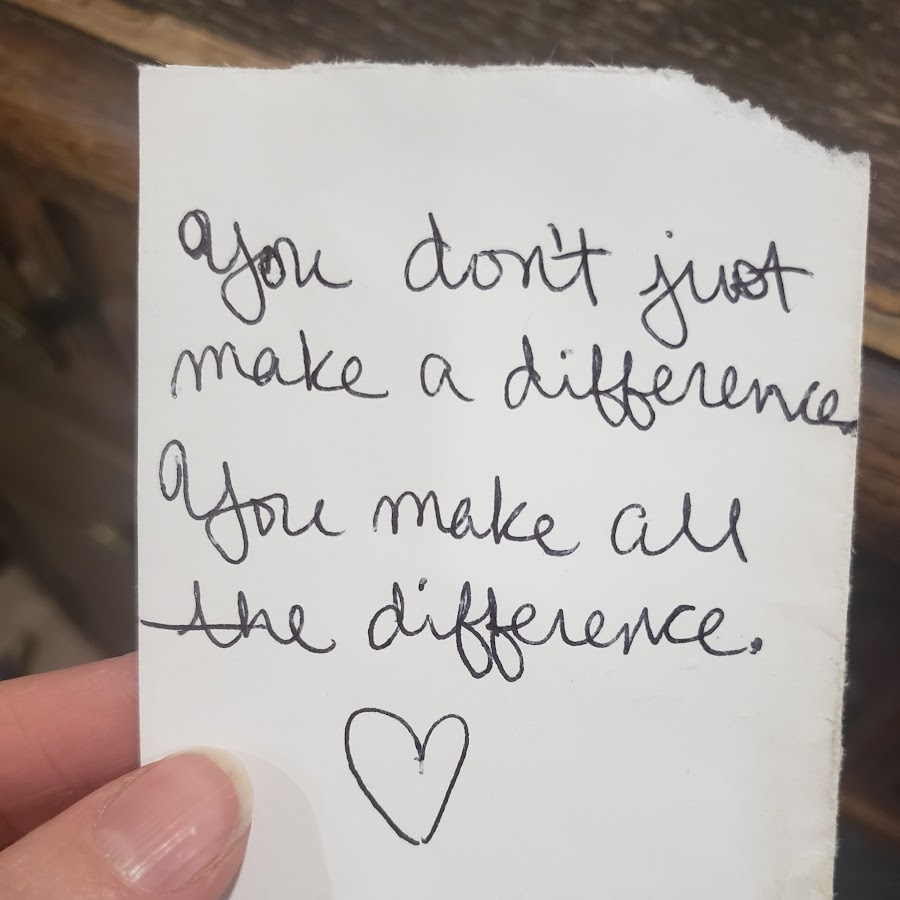 You don't just
make a difference.
You make all
the difference.